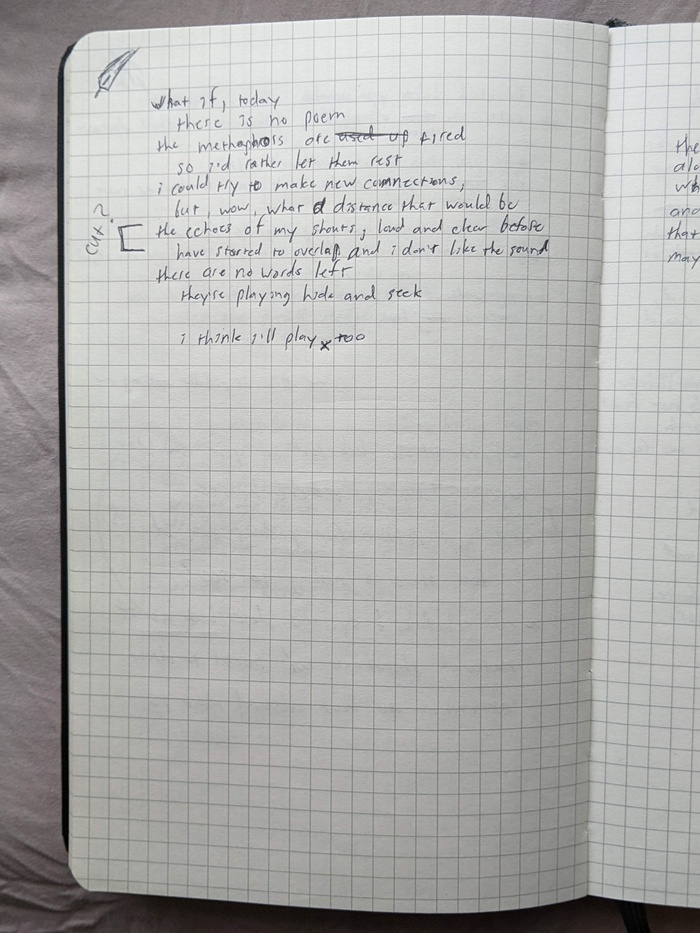 what if, today
there is no poem
the methaphors are used up tired
so i'd rather let them rest
i could try to make new connections,
but, wow, what a distance that would be
cut?
the echoes of my shouts, loud and clear before
have started to overlap and i don't like the sound
there are no words left
they're playing hide and seek
i think i'll play too
the
alo
wh
and
that
may